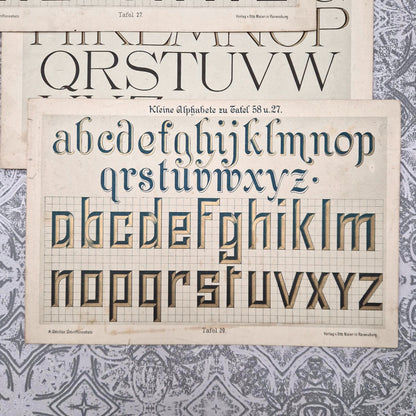 Tafel 27.
Verlag v. Otto Maier in Ravensburg.
HIKLMNOP
QRSTUVW
Kleine Alphabete zu Tafel 58 u. 27.
abcdefghijklmnop
qrstuvwxyz.
abcdefghiklm
nopqrstuvxyz
Tafel 29.
Verlag v. Otto Maier in Ravensburg.